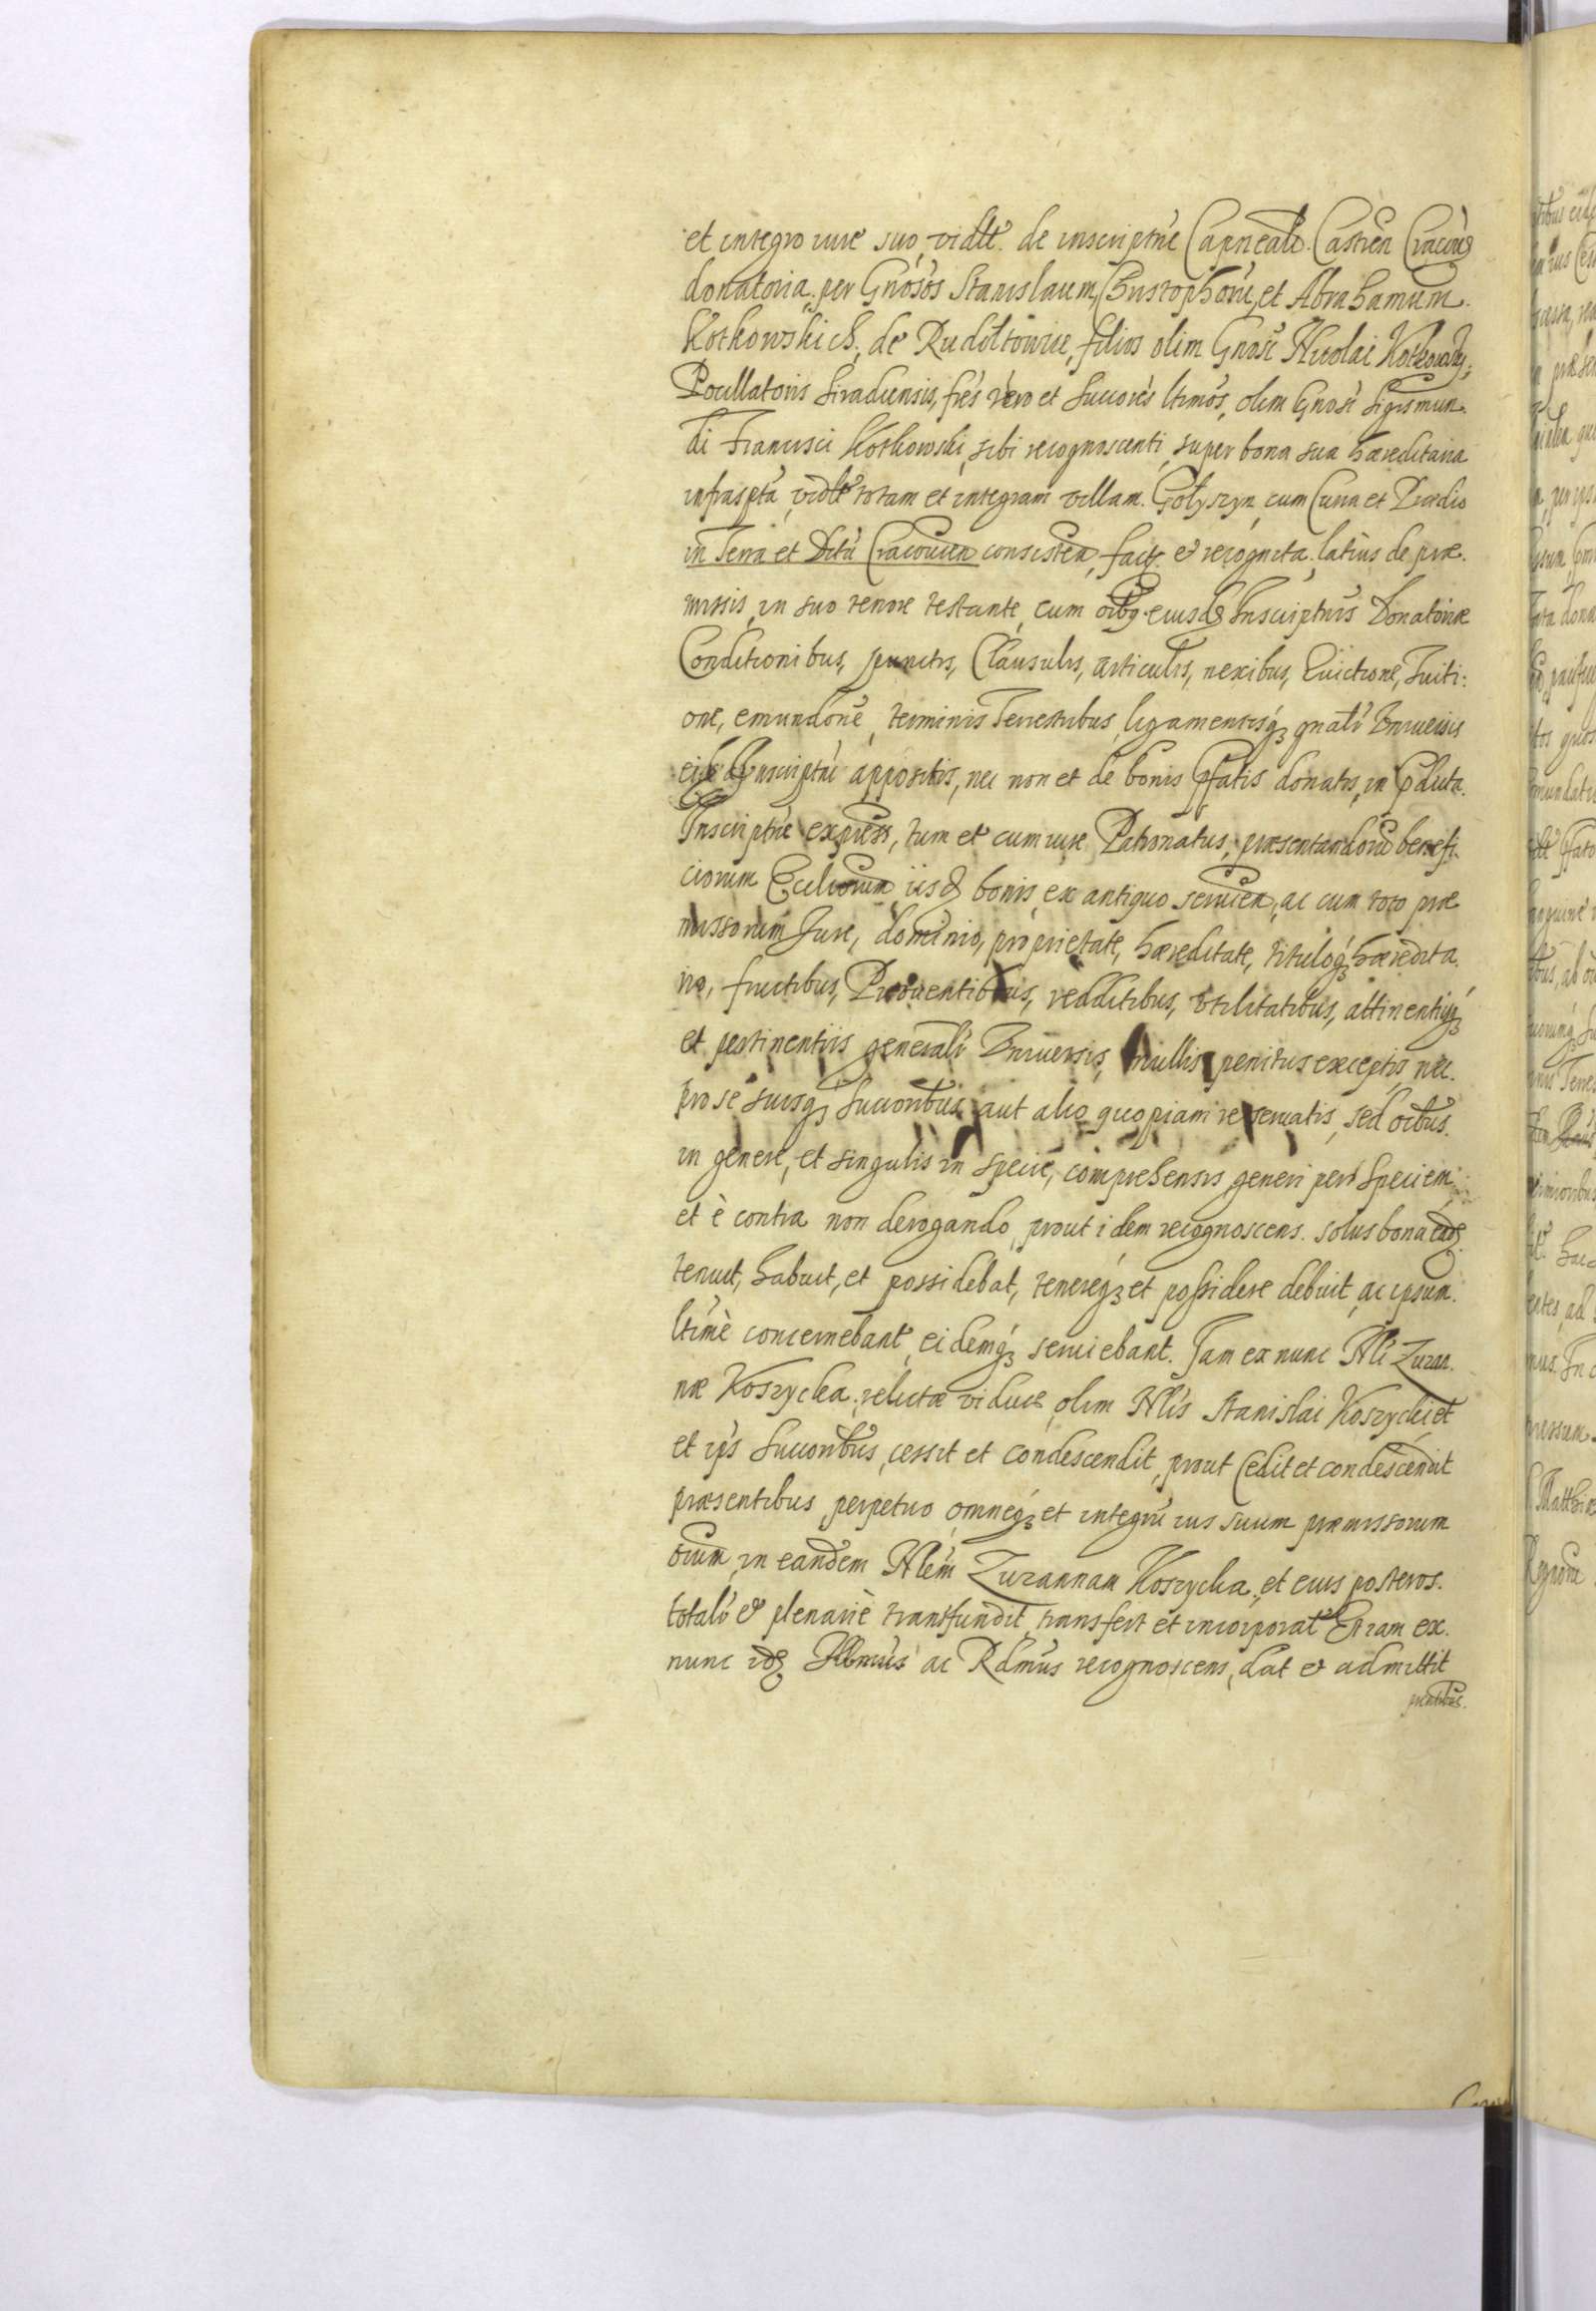 et integro iure suo, vidlt. de inscriptne Capneali. Castren Cracoũ
donatoria, per Gnosos Stanislaum, Christophorũ, et Abrahamum
Kotkowskich, de Rudoltowice, filios olim Gnosi Nicolai Kotkowsky,
Pocillatoris Siradiensis, fres vero et Succores ltimos, olim Gnosi Sigismun
di Francisci Kotkowski, sibi recognoscenti, super bona sua hæreditaria
infrascpta, vidlt totam et integram villam Gołyszyn, cum Curia et Prædio
in Terra et Dttu Cracouien consisten, facta et recognita, latius de præ
missis, in suo tenore testante, cum oibq eiusdẽ Inscriptnis Donatoriæ
Conditionibus, punctis, Clausulis, articulis, nexibus, Euictione, Tuiti:
one, emundone, terminis Terrestribus, ligamentisq3 gnali Vniuersis
eidẽ Inscriptni appositis, nec non et de bonis Pfatis donatis, in Pducta
Inscriptne express, tum et cum iure Patronatus, præsentandorũ benefi
ciorum Eccliorum, iisdẽ bonis, ex antiquo seruien, ac cum toto præ
missorum Jure, dominio, proprietate, hæreditate, tituloq3 hæredita
rio, fructibus, Prouentibus, redditibus, vtilitatibus, attinentijsq3
et pertinentiis generali Vniuersis, nullis penitus exceptis, nec
pro se suisq3 Succoribus, aut alio quopiam reseruatis, sed oibus
in genere, et singulis in specie, comprehensis, generi per speciem
et è contra non derogando, prout idem recognoscens solus bona eadẽ
tenuit, habuit, et possidebat, tenereq3 et possidere debuit, ac ipsum
ltimè concernebant, eidemq3 seruiebant. Jam ex nunc Nli Zuzan
næ Koszycka, relictæ viduæ, olim Nlis Stanislai Koszycki, et
et ips Succoribus, cessit et condescendit, prout Cedit et condescendit
præsentibus perpetuo, omneq3 et integrũ ius suum præmissorum
oium, in eandem Nlem Zuzannam Koszycka, et eius posteros
totali et plenariè transfundit, transfert et incorporat Etiam ex
nunc idẽ Illmus ac Rdmus recognoscens, dat et admittit
pntibus.